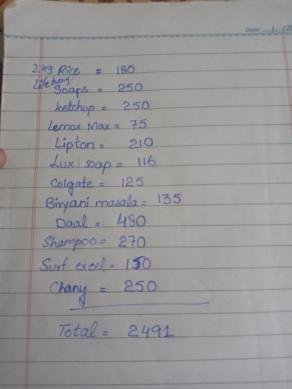 Date
2kg Rice = 180
Lifebuoy
Soaps = 250
ketchup = 250
Lemox Max = 75
Lipton = 210
Lux soap = 116
Colgate = 125
Biryani masala = 135
Daal = 480
Shampoo = 270
Surf excel = 150
Chany = 250
Total = 2491